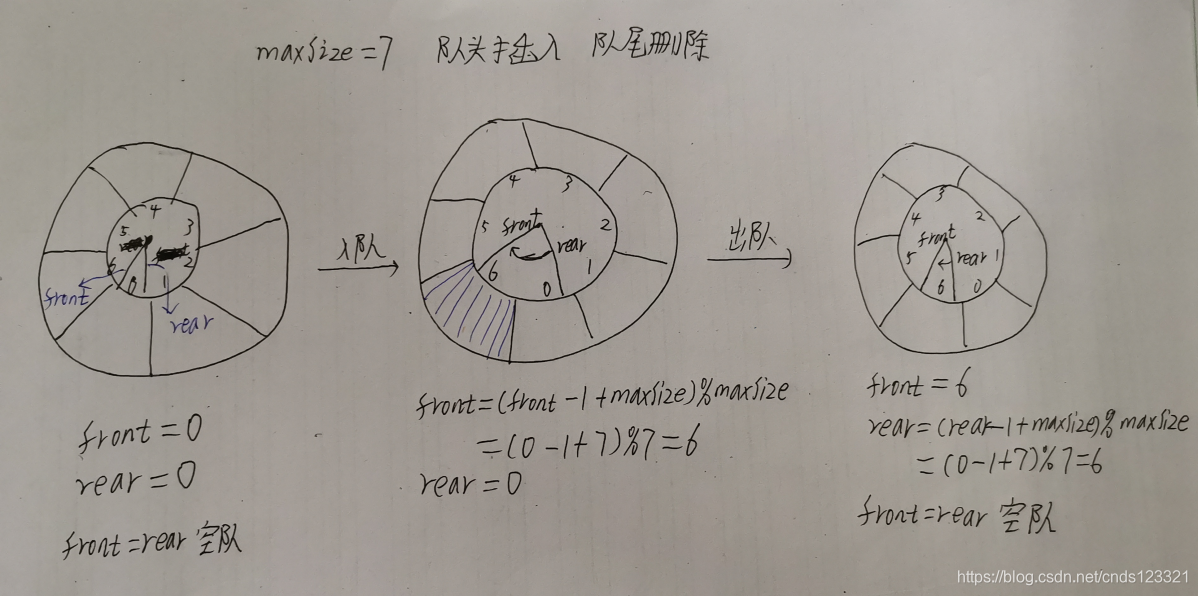 maxSize=7 队头插入 队尾删除
4
5
3
6
2
0
1
front
rear
入队
4
3
5
2
front
rear
6
1
0
出队
3
4
2
front
5
rear
1
6
0
front=0
rear=0
front=rear 空队
front=(front-1+maxSize)%maxSize
=(0-1+7)%7=6
rear=0
front=6
rear=(rear-1+maxSize)%maxSize
=(0-1+7)%7=6
front=rear 空队
https://blog.csdn.net/cnds123321